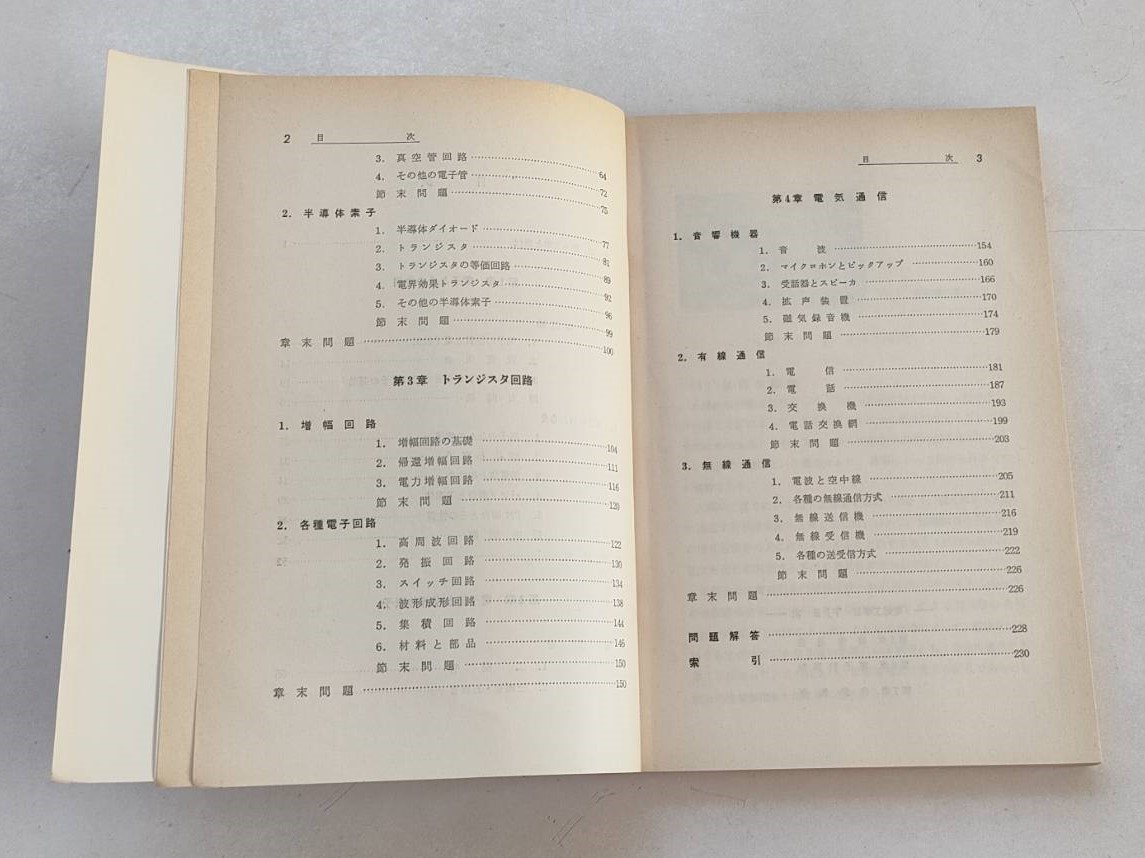 2 目 次
3. 真空管回路 64
4. その他の電子管 72
節末問題 75
2. 半導体素子
1. 半導体ダイオード 77
2. トランジスタ 81
3. トランジスタの等価回路 89
4. 電界効果トランジスタ 92
5. その他の半導体素子 96
節末問題 99
章末問題 100
第3章 トランジスタ回路
1. 増幅回路
1. 増幅回路の基礎 104
2. 帰還増幅回路 111
3. 電力増幅回路 116
節末問題 120
2. 各種電子回路
1. 高周波回路 122
2. 発振回路 130
3. スイッチ回路 134
4. 波形成形回路 138
5. 集積回路 144
6. 材料と部品 146
節末問題 150
章末問題 150
目 次 3
第4章 電気通信
1. 音響機器
1. 音波 154
2. マイクロホンとピックアップ 160
3. 受話器とスピーカ 166
4. 拡声装置 170
5. 磁気録音機 174
節末問題 179
2. 有線通信
1. 電信 181
2. 電話 187
3. 交換機 193
4. 電話交換網 199
節末問題 203
3. 無線通信
1. 電波と空中線 205
2. 各種の無線通信方式 211
3. 無線送信機 216
4. 無線受信機 219
5. 各種の送受信方式 222
節末問題 226
章末問題 226
問題解答 228
索引 230